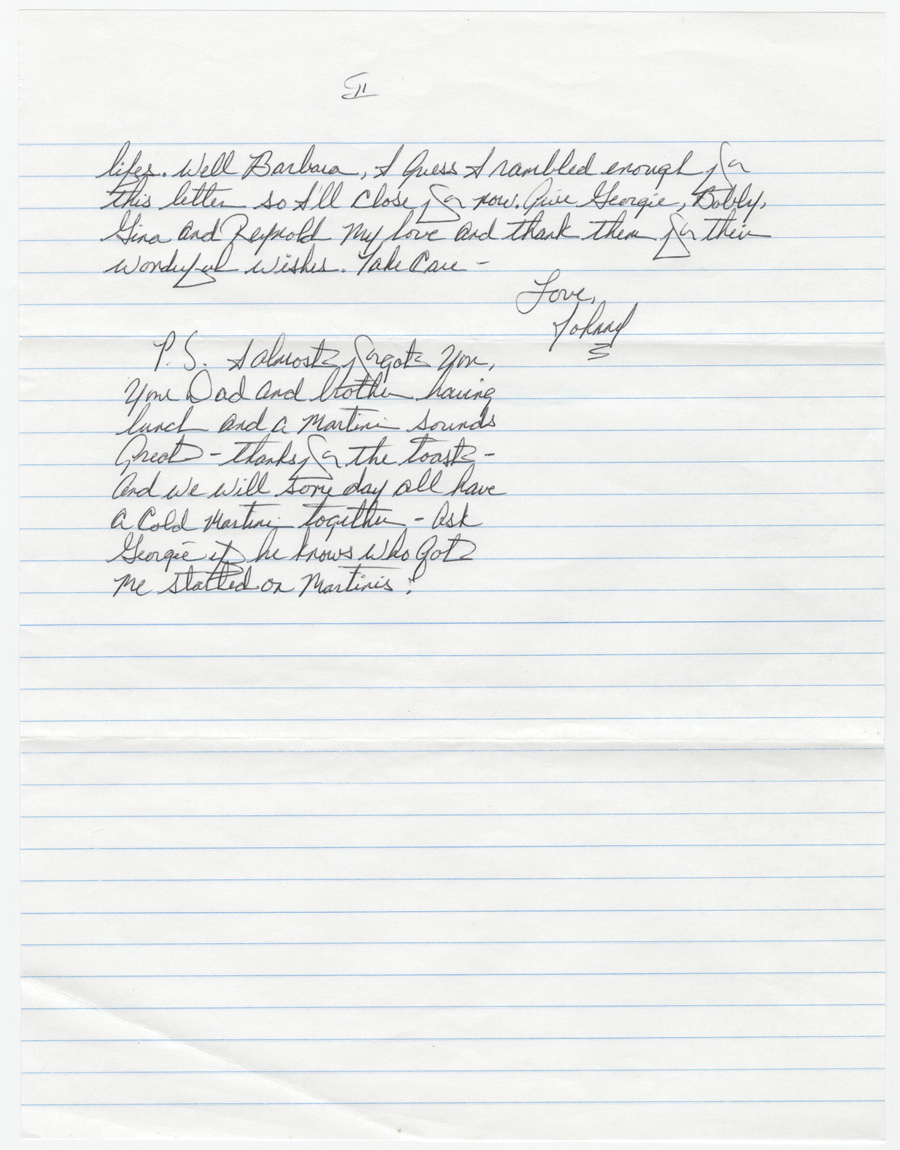 II
lifes. Well Barbara, I guess I rambled enough for
this letter so I'll close for now. Give Georgie, Bobby,
Gina and Reynold My love and thank them for their
wonderful wishes. Take Care -
Love,
Johnny
P.S. I almost forgot You,
Your Dad and brother having
lunch and a Martini sounds
Great - thanks for the toast -
And we will some day all have
a Cold Martini together - ask
Georgie if he knows who Got
Me started on Martinis?